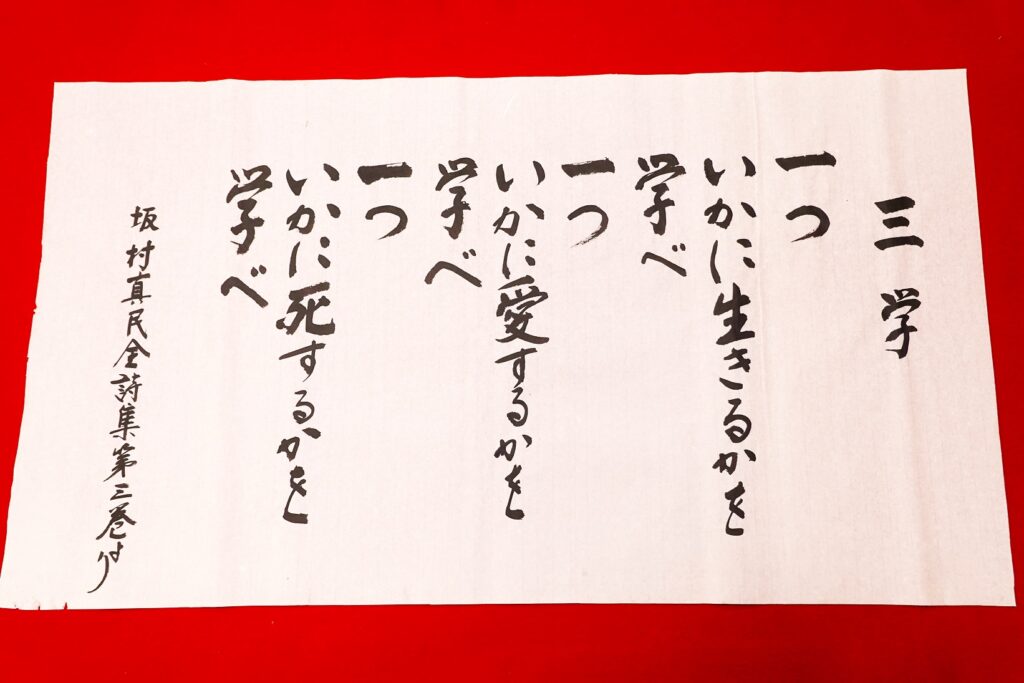 三学
一つ
いかに生きるかを
学べ
一つ
いかに愛するかを
学べ
一つ
いかに死するかを
学べ
坂村真民全詩集第三巻より